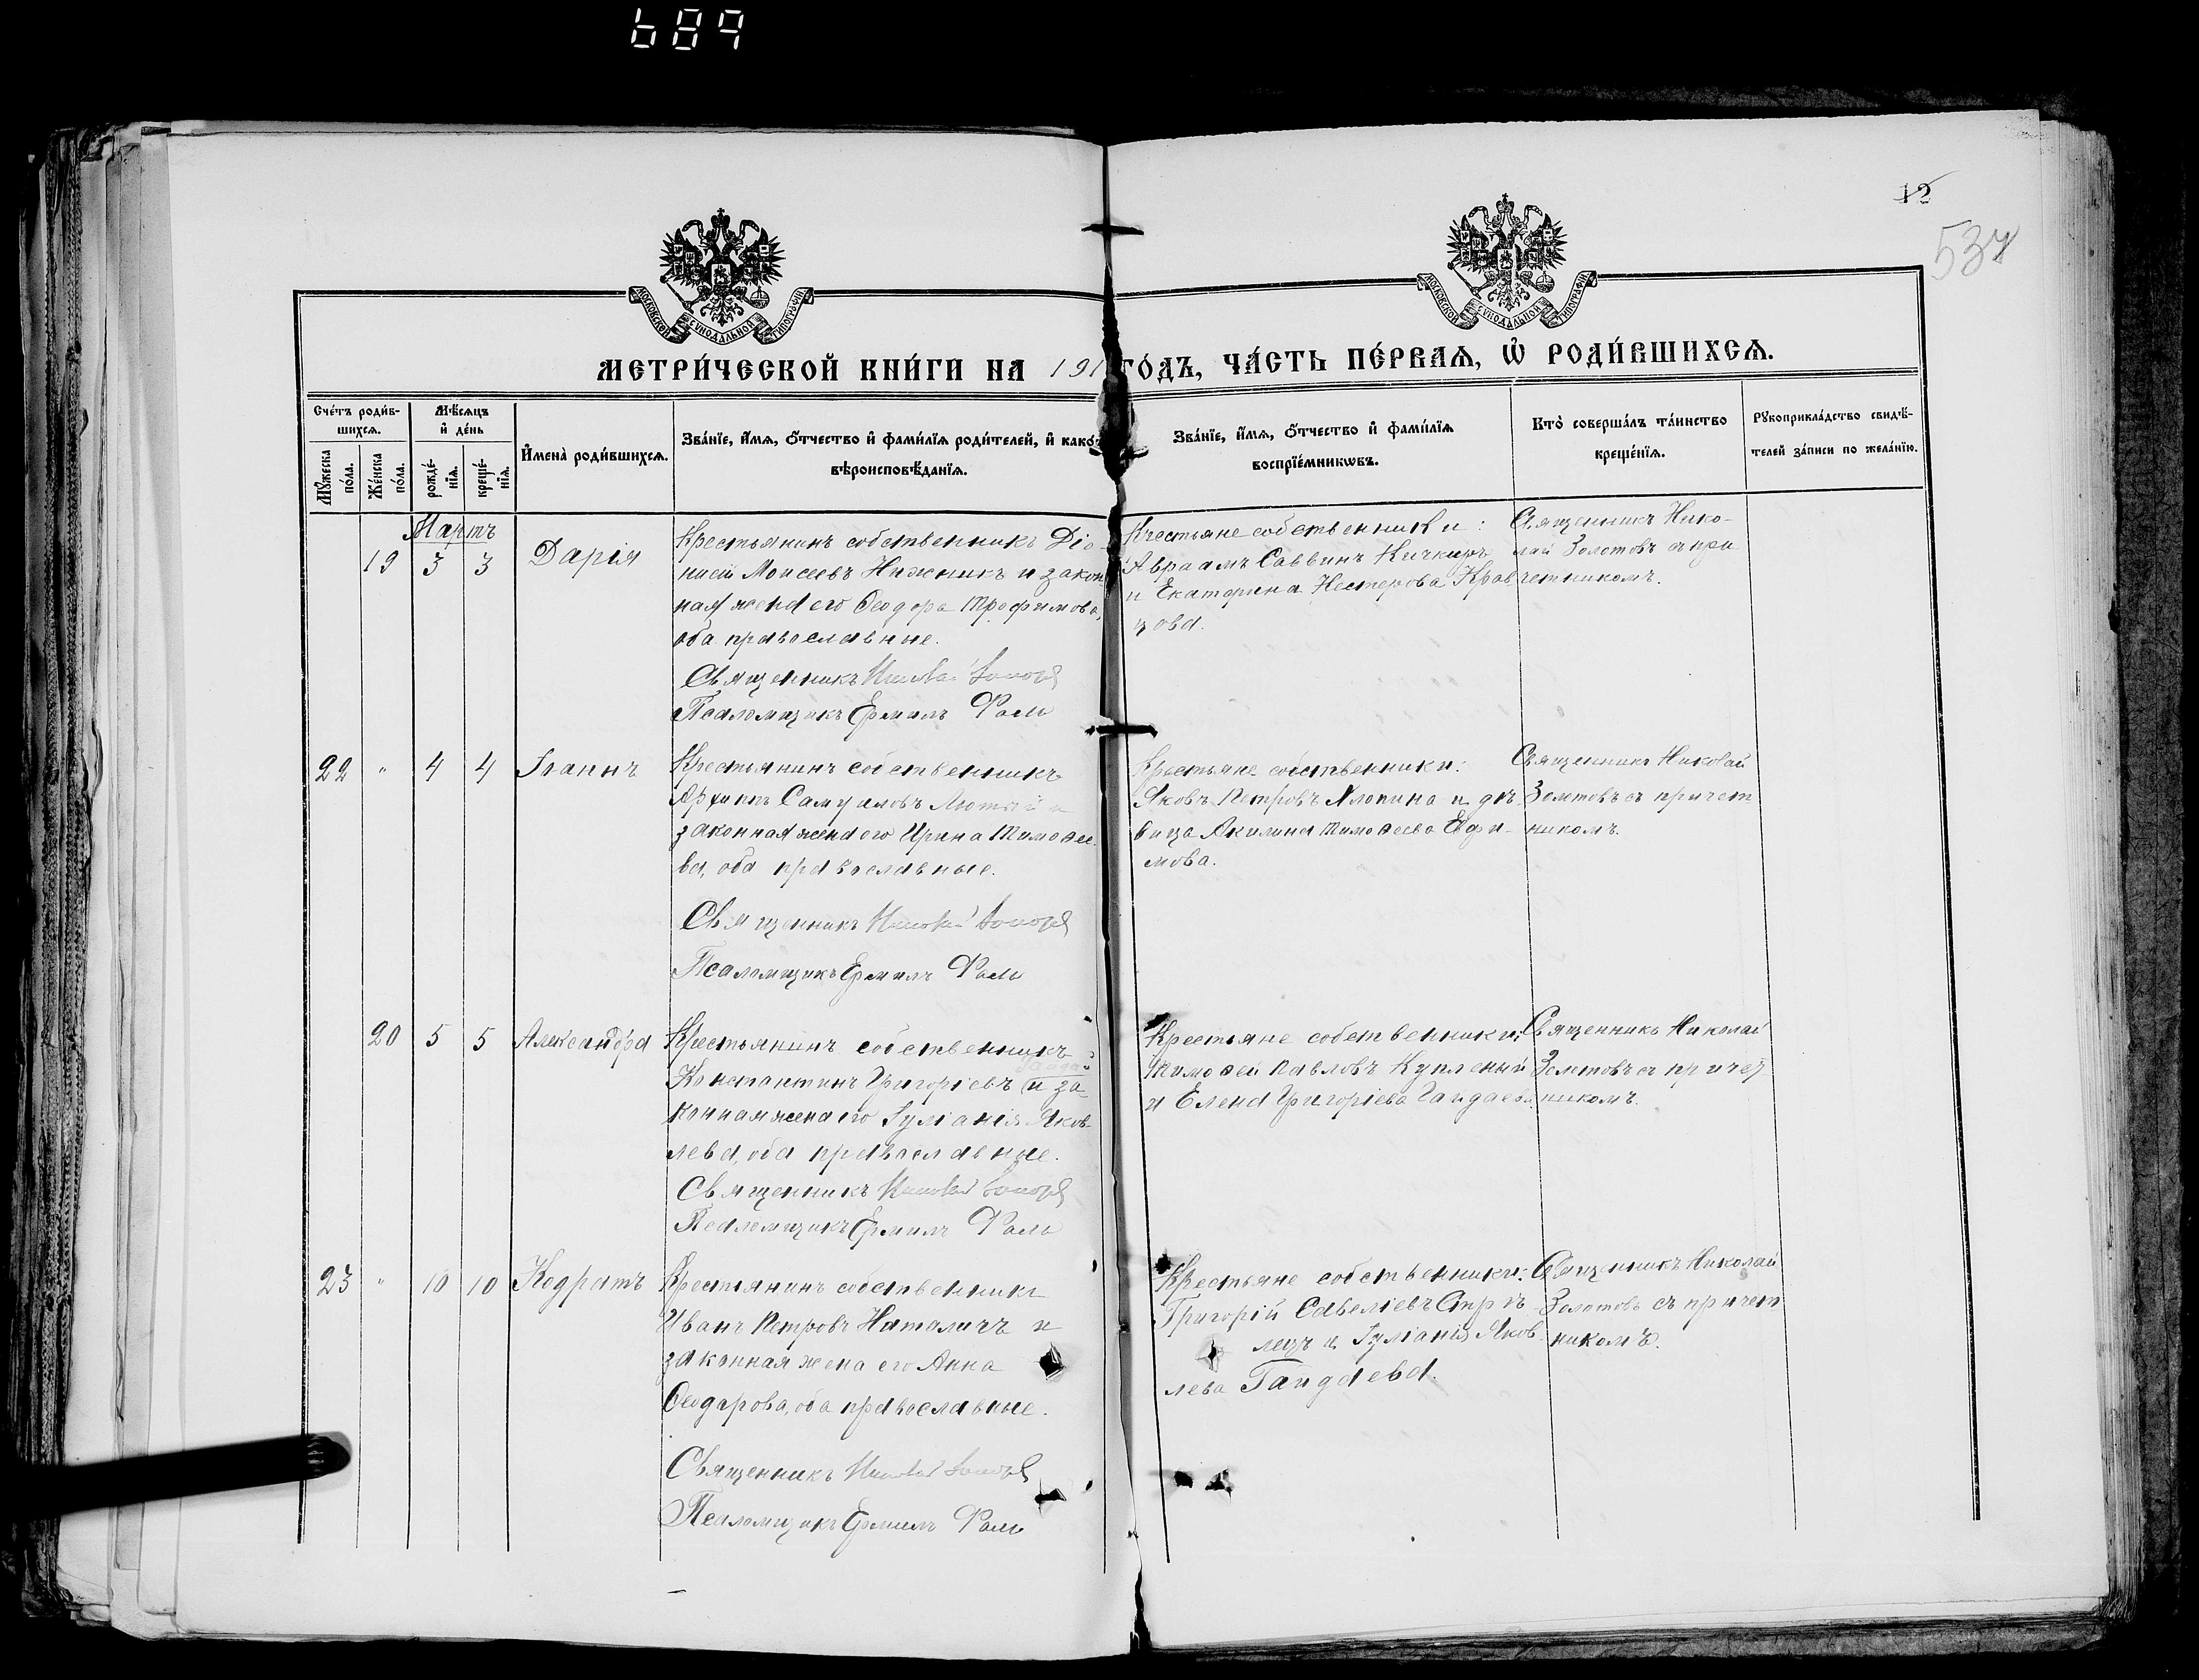 689
12
537
МОСКОВСКОЙ СѴНОДАЛЬНОЙ ТИПОГРАФІИ
МОСКОВСКОЙ СѴНОДАЛЬНОЙ ТИПОГРАФІИ
МЕТРИ́ЧЕСКОЙ КНИ́ГИ НА 191 ГО́ДЪ, ЧА́СТЬ ПЕ́РВАѦ, Ѡ҆ РОДИ́ВШИХСѦ.
Сче́тъ роди́в-
шихсѧ.
Мꙋ́жеска по́ла.
Же́нска по́ла.
Мѣ́сѧцъ
и҆ де́нь
рожде́-нїѧ.
креще́-нїѧ.
И҆мена̀ роди́вшихсѧ.
Зва́нїе, и҆́мѧ, ѻ҆́тчество и҆ фами́лїѧ роди́телей, и҆ како́
вѣроисповѣ́данїѧ.
Зва́нїе, и҆́мѧ, ѻ҆́тчество и҆ фами́лїѧ
воспрїе́мникѡвъ.
Кто̀ соверша́лъ та́инство
креще́нїѧ.
Рꙋкоприкла́дство свидѣ́-
телей за́писи по жела́нїю.
Мартъ
19 3 3 Дарія
Крестьянинъ собственникъ Діо-
нисій Моисеевъ Нижникъ и закон
ная жена его Ѳеодора Трофимова,
оба православные.
Священникъ Николай Золотовъ
Псаломщикъ Ермилъ
Крестьяне собственники:
Авраамъ Саввинъ
и Екатерина Нестерова Крав
цова.
Священникъ Нико-
лай Золотовъ съ при-
четникомъ.
22 " 4 4 Іоаннъ
Крестьянинъ собственникъ
Архипъ Самуиловъ Лютый и
законная жена его Ирина Тимоѳее
ва, оба православные.
Священникъ Николай Золотовъ
Псаломщикъ Ермилъ
Крестьяне собственники:
Яковъ Петровъ Хлопина и дѣ-
вица Акилина Тимоѳеева Евфи-
мова.
Священникъ Николай
Золотовъ съ причет
никомъ.
20 5 5 Александра
Крестьянинъ собственникъ
Константинъ Григоріевъ и за
конная жена его Іуліанія Яков-
лева, оба православные.
Священникъ Николай Золотовъ
Псаломщикъ Ермилъ
Крестьяне собственники:
Тимоѳей Павловъ Купленый
и Елена Григоріева Гайдаева.
Священникъ Николай
Золотовъ съ причет
никомъ.
23 " 10 10 Кодратъ
Крестьянинъ собственникъ
Иванъ Петровъ Наталичъ и
законная жена его Анна
Ѳеодорова, оба православные.
Священникъ Николай Золотовъ
Псаломщикъ Ермилъ
Крестьяне собственники:
Григорій Савеліевъ Стрѣ-
лецъ и Іуліанія Яков-
лева Гайдаева.
Священникъ Николай
Золотовъ съ причет
никомъ.